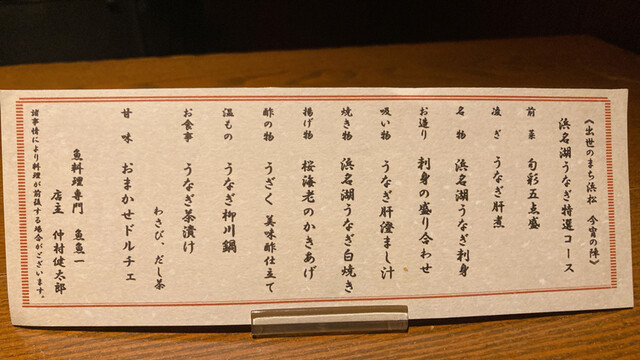 《出世のまち浜松 今宵の陣》
浜名湖うなぎ特選コース
前菜 旬彩五点盛
凌ぎ うなぎ肝煮
名物 浜名湖うなぎ刺身
お造り 刺身の盛り合わせ
吸い物 うなぎ肝澄まし汁
焼き物 浜名湖うなぎ白焼き
揚げ物 桜海老のかきあげ
酢の物 うざく 美味酢仕立て
温もの うなぎ柳川鍋
お食事 うなぎ茶漬け
わさび、だし茶
甘味 おまかせドルチェ
魚料理専門 魚魚一
店主 仲村健太郎
諸事情により料理が前後する場合がございます。